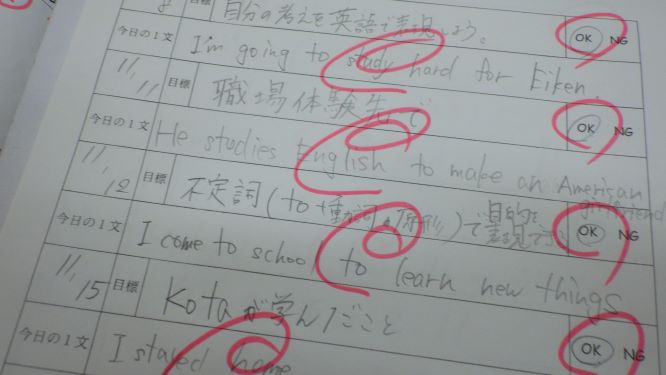 8 目標 自分の考えを英語で表現しよう。 OK NG
今日の1文 I'm going to study hard for Eiken.
11/11 目標 職場体験先で OK NG
今日の1文 He studies English to make an American girlfriend
11/12 目標 不定詞(to+動詞の原形)で目的を表現できる OK NG
今日の1文 I come to school to learn new things
11/15 目標 Kotaが学んだこと OK NG
今日の1文 I stayed home